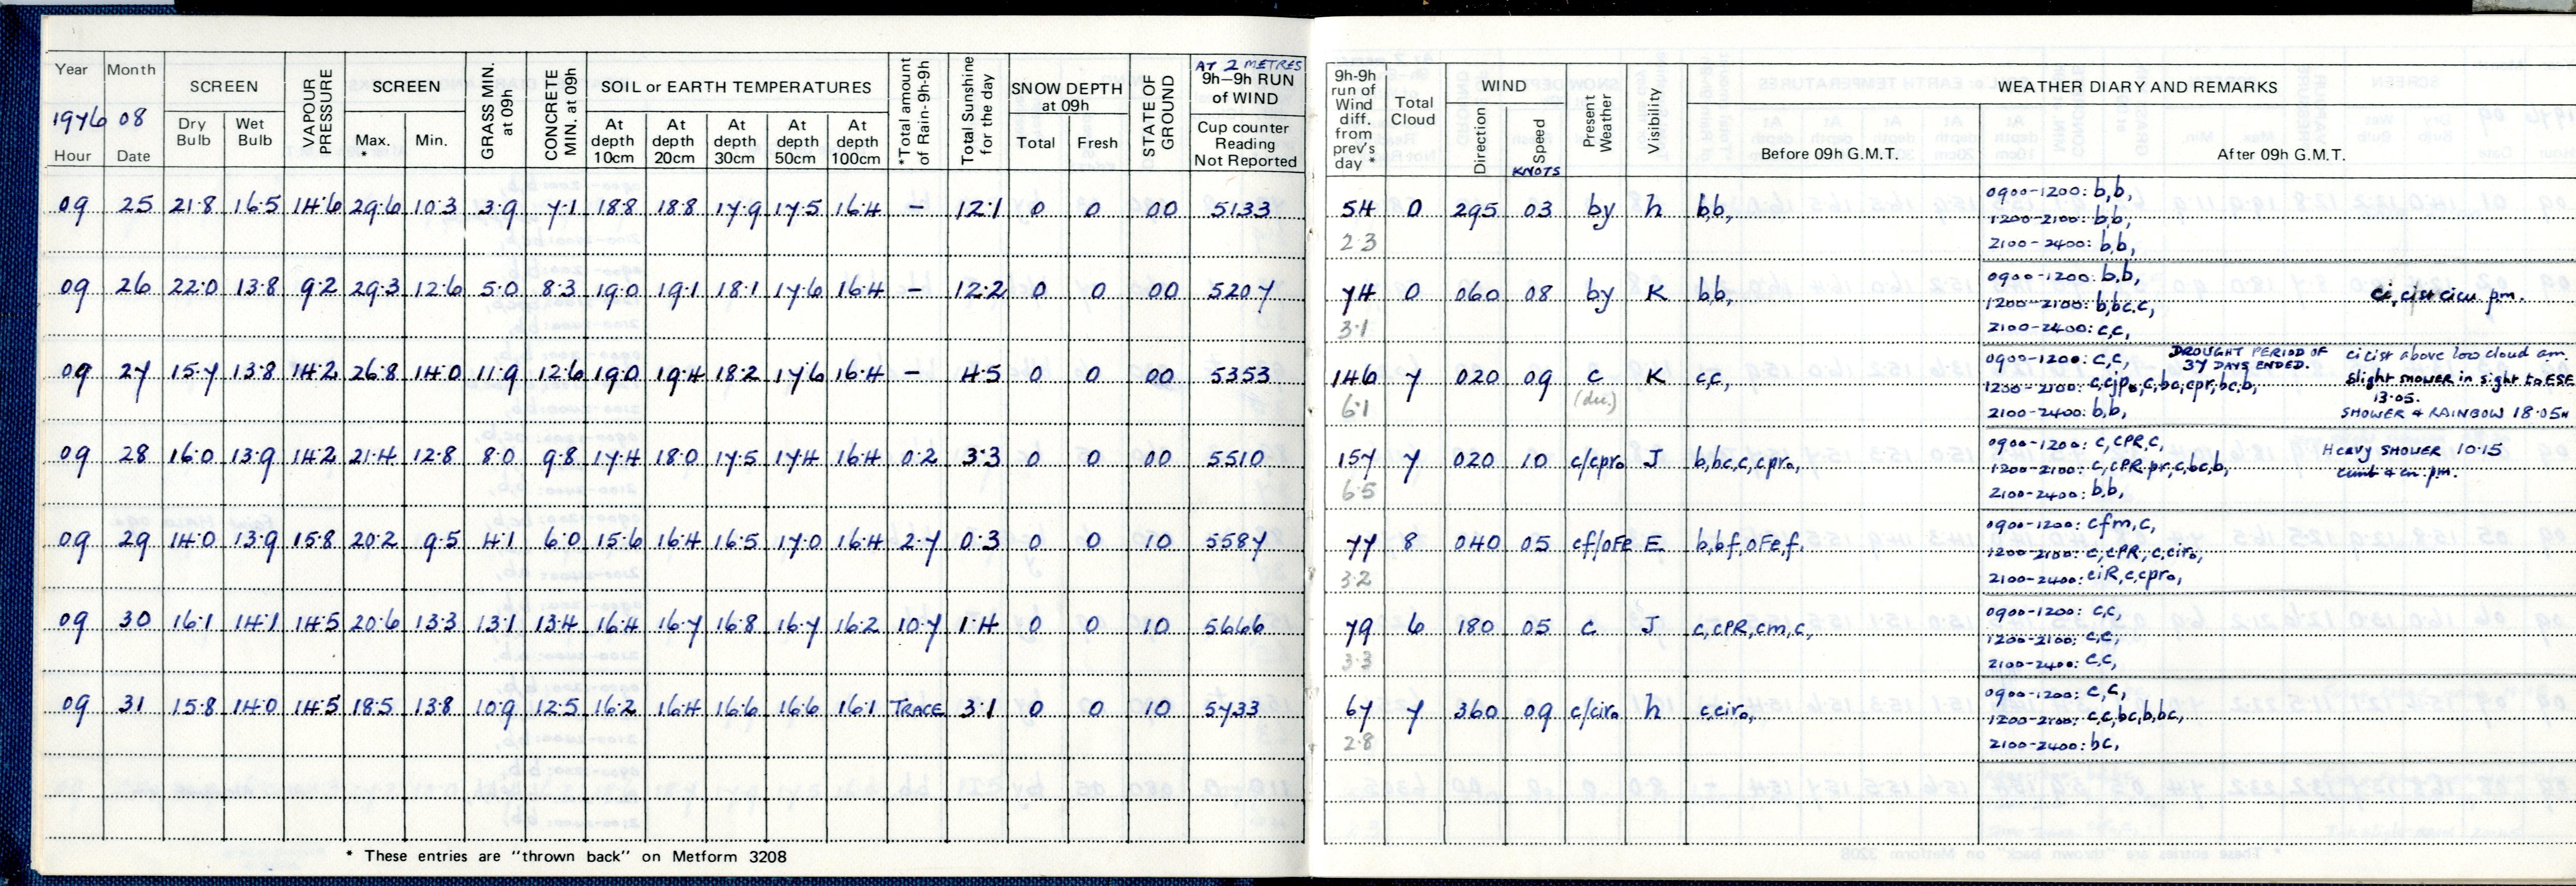 Year Month SCREEN VAPOUR PRESSURE SCREEN GRASS MIN. at 09h CONCRETE MIN. at 09h SOIL or EARTH TEMPERATURES *Total amount of Rain-9h-9h Total Sunshine for the day SNOW DEPTH at 09h STATE OF GROUND AT 2 METRES 9h-9h RUN of WIND
1976 08 Dry Bulb Wet Bulb Max. * Min. At depth 10cm At depth 20cm At depth 30cm At depth 50cm At depth 100cm Total Fresh Cup counter Reading Not Reported
Hour Date
09 25 21.8 16.5 14.6 29.6 10.3 3.9 7.1 18.8 18.8 17.9 17.5 16.4 – 12.1 0 0 00 5133
09 26 22.0 13.8 9.2 29.3 12.6 5.0 8.3 19.0 19.1 18.1 17.6 16.4 – 12.2 0 0 00 5207
09 27 15.7 13.8 14.2 26.8 14.0 11.9 12.6 19.0 19.4 18.2 17.6 16.4 – 4.5 0 0 00 5353
09 28 16.0 13.9 14.2 21.4 12.8 8.0 9.8 17.4 18.0 17.5 17.4 16.4 0.2 3.3 0 0 00 5510
09 29 14.0 13.9 15.8 20.2 9.5 4.1 6.0 15.6 16.4 16.5 17.0 16.4 2.7 0.3 0 0 10 5587
09 30 16.1 14.1 14.5 20.6 13.3 13.1 13.4 16.4 16.7 16.8 16.7 16.2 10.7 1.4 0 0 10 5666
09 31 15.8 14.0 14.5 18.5 13.8 10.9 12.5 16.2 16.4 16.6 16.6 16.1 TRACE 3.1 0 0 10 5733
* These entries are "thrown back" on Metform 3208
9h-9h run of Wind diff. from prev's day * Total Cloud WIND Present Weather Visibility WEATHER DIARY AND REMARKS
Direction Speed KNOTS Before 09h G.M.T. After 09h G.M.T.
54 0 295 03 by h b,b, 0900-1200: b,b,
1200-2100: b,b,
2.3 2100-2400: b,b,
74 0 060 08 by K b,b, 0900-1200: b,b,
1200-2100: b,bc,c, Ci, cist cicu pm.
3.1 2100-2400: c,c,
146 7 020 09 c K c,c, 0900-1200: c,c, DROUGHT PERIOD OF 37 DAYS ENDED. ci cist above low cloud am.
1200-2100: c,cjpo,c,bc,cpr,bc,b, Slight SHOWER in sight to ESE 13.05.
6.1 2100-2400: b,b, SHOWER & RAINBOW 18.05H
157 7 020 10 c/cpro J b,bc,c,cpro, 0900-1200: c,cPR,c, Heavy SHOWER 10.15
1200-2100: c,cPR,pr,c,bc,b, cumb & cu. p.m.
6.5 2100-2400: b,b,
77 8 040 05 cf/oFe E b,bf,oFe,f. 0900-1200: cfm,c,
1200-2100: c,cPR,c,ciro,
3.2 2100-2400: ciR,c,cpro,
79 6 180 05 c J c,cPR,cm,c, 0900-1200: c,c,
1200-2100: c,c,
3.3 2100-2400: c,c,
67 7 360 09 c/ciro h c,ciro, 0900-1200: c,c,
1200-2100: c,c,bc,b,bc,
2.8 2100-2400: bc,